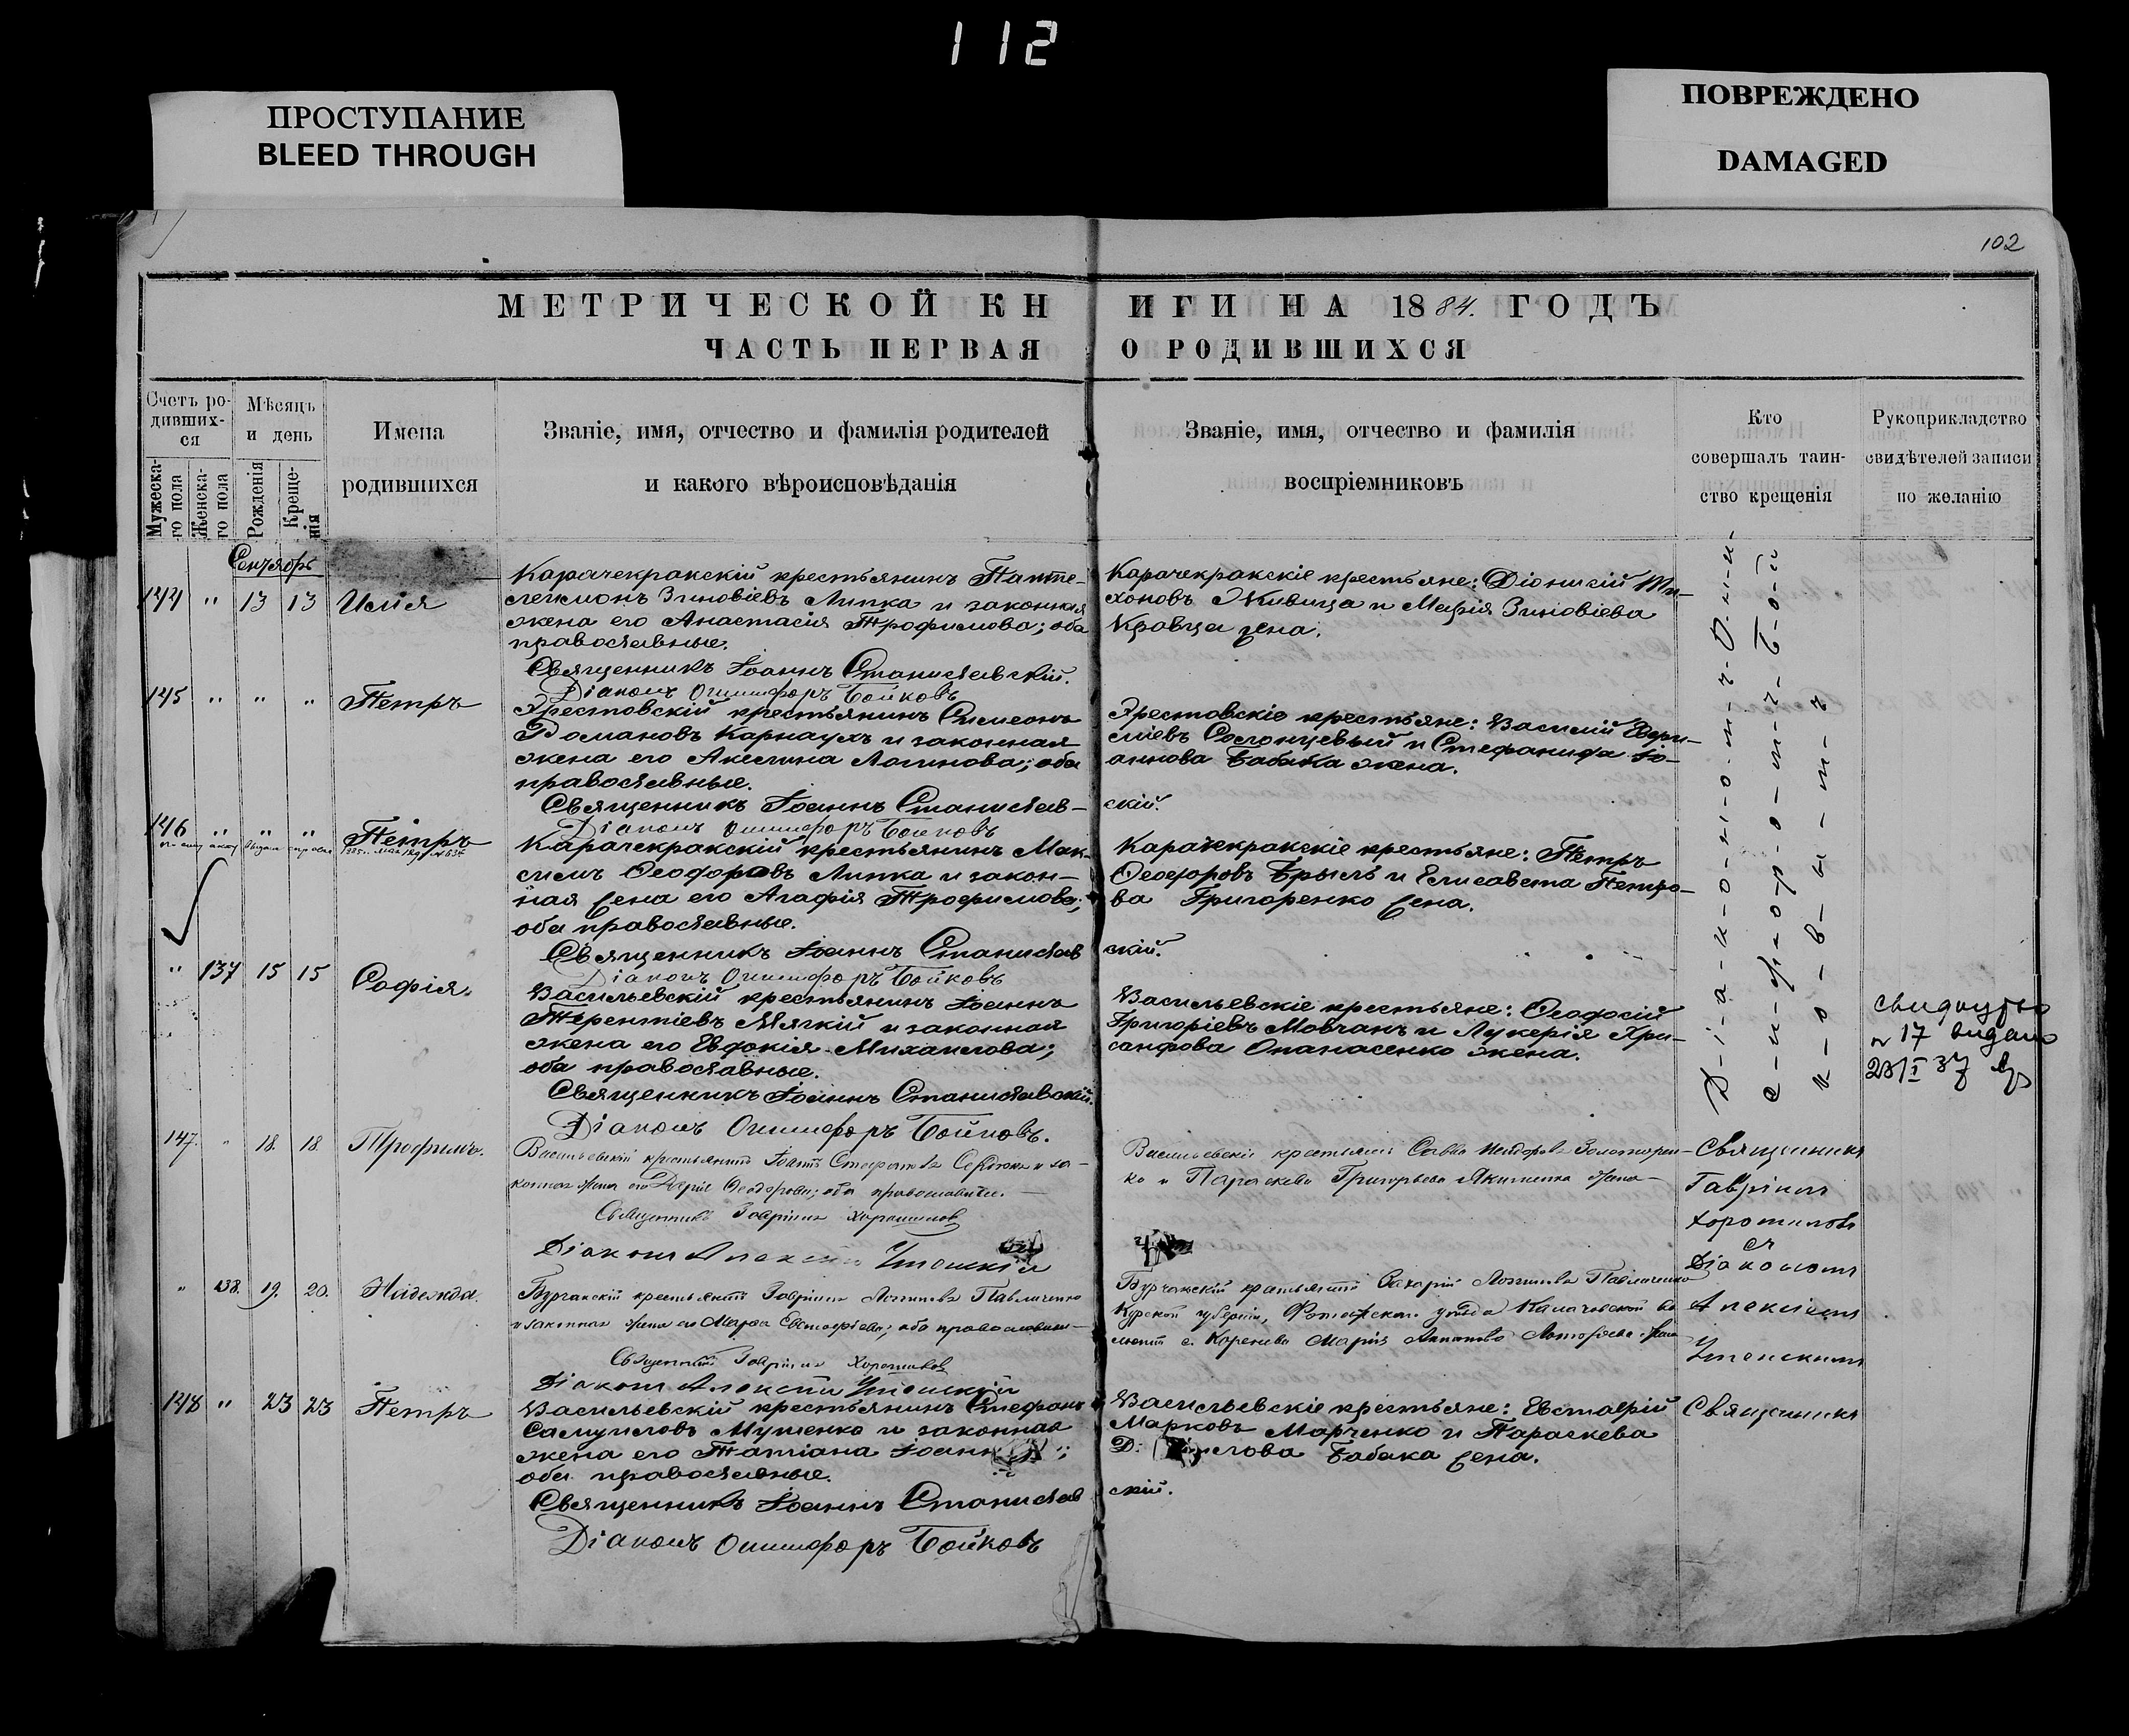 112
ПРОСТУПАНИЕ
BLEED THROUGH
ПОВРЕЖДЕНО
DAMAGED
102
МЕТРИЧЕСКОЙ КНИГИ НА 1884. ГОДЪ
ЧАСТЬ ПЕРВАЯ О РОДИВШИХСЯ
Счетъ родившихся
Мужеска-го пола
Женска-го пола
Мѣсяцъ и день
Рожденія
Креще-нія
Имена родившихся
Званіе, имя, отчество и фамилія родителей
и какого вѣроисповѣданія
Званіе, имя, отчество и фамилія
воспріемниковъ
Кто
совершалъ таин-
ство крещенія
Рукоприкладство
свидѣтелей записи
по желанію
Сентябрь
144 " 13 13 Илія
Карачекракскій крестьянинъ Панте-
леимонъ Зиновіевъ Липка и законная
жена его Анастасія Трофимова; оба
православные.
Священникъ Іоаннъ Станиславскій.
Діаконъ Онисифоръ Бойковъ
Карачекракскіе крестьяне: Діонисій Ти-
хоновъ Живица и Марія Зиновіева
Кравца жена.
145 " " " Петръ
крестьянинъ Симеонъ
Романовъ Карнаухъ и законная
жена его Акилина Логинова; оба
православные.
Священникъ Іоаннъ Станислав-
скій.
Діаконъ Онисифоръ Бойковъ
крестьяне: Василій
и Стефанида Іо-
аннова Бабака жена.
146 " " " Петръ
Карачекракскій крестьянинъ Мак-
симъ Ѳеодоровъ Липка и закон-
ная жена его Агафія Трофимова;
оба православные.
Священникъ Іоаннъ Станислав
скій.
Діаконъ Онисифоръ Бойковъ
Карачекракскіе крестьяне: Петръ
Ѳеодоровъ Брыль и Елисавета Петро-
ва Григоренко жена.
" 137 15 15 Софія.
Васильевскій крестьянинъ Іоаннъ
Терентіевъ Мягкій и законная
жена его Евдокія Михаилова;
оба православные.
Священникъ Іоаннъ Станиславскій.
Діаконъ Онисифоръ Бойковъ.
Васильевскіе крестьяне: Ѳеодосій
Григоріевъ Мовчанъ и Лукерія Хри-
санфова Опанасенко жена.
№ 17 видано
147. " 18. 18. Трофимъ.
Васильевскій крестьянинъ Іоаннъ Стефановъ Сердюкъ и за-
конная жена его Дарія Ѳеодорова; оба православные.
Священникъ Гавріилъ Хорошиловъ
Діаконъ Алексій Успенскій
Васильевскіе крестьяне Савва Исидоровъ Золотарен-
ко и Параскева Григорьева Якименка жена
Священникъ
Гавріилъ
Хорошиловъ
съ
Діакономъ
Алексіемъ
Успенскимъ
" 138. 19. 20. Надежда.
Бурчакскій крестьянинъ Гавріилъ Логгиновъ Павличенко
и законная жена его Марѳа Евстафіева; оба православные
Священникъ Гавріилъ Хорошиловъ
Діаконъ Алексій Успенскій
Бурчакскій крестьянинъ Захарій Логгиновъ Павличенко
Курской губерніи, уѣзда
Марія жена
148 " 23 23 Петръ
Васильевскій крестьянинъ Стефанъ
Самуиловъ Мушенко и законная
жена его Татіана Іоанн
оба православные.
Священникъ Іоаннъ Станислав
скій.
Діаконъ Онисифоръ Бойковъ
Васильевскіе крестьяне: Евстафій
Марковъ Марченко и Параскева
лова Бабака жена.
Священникъ